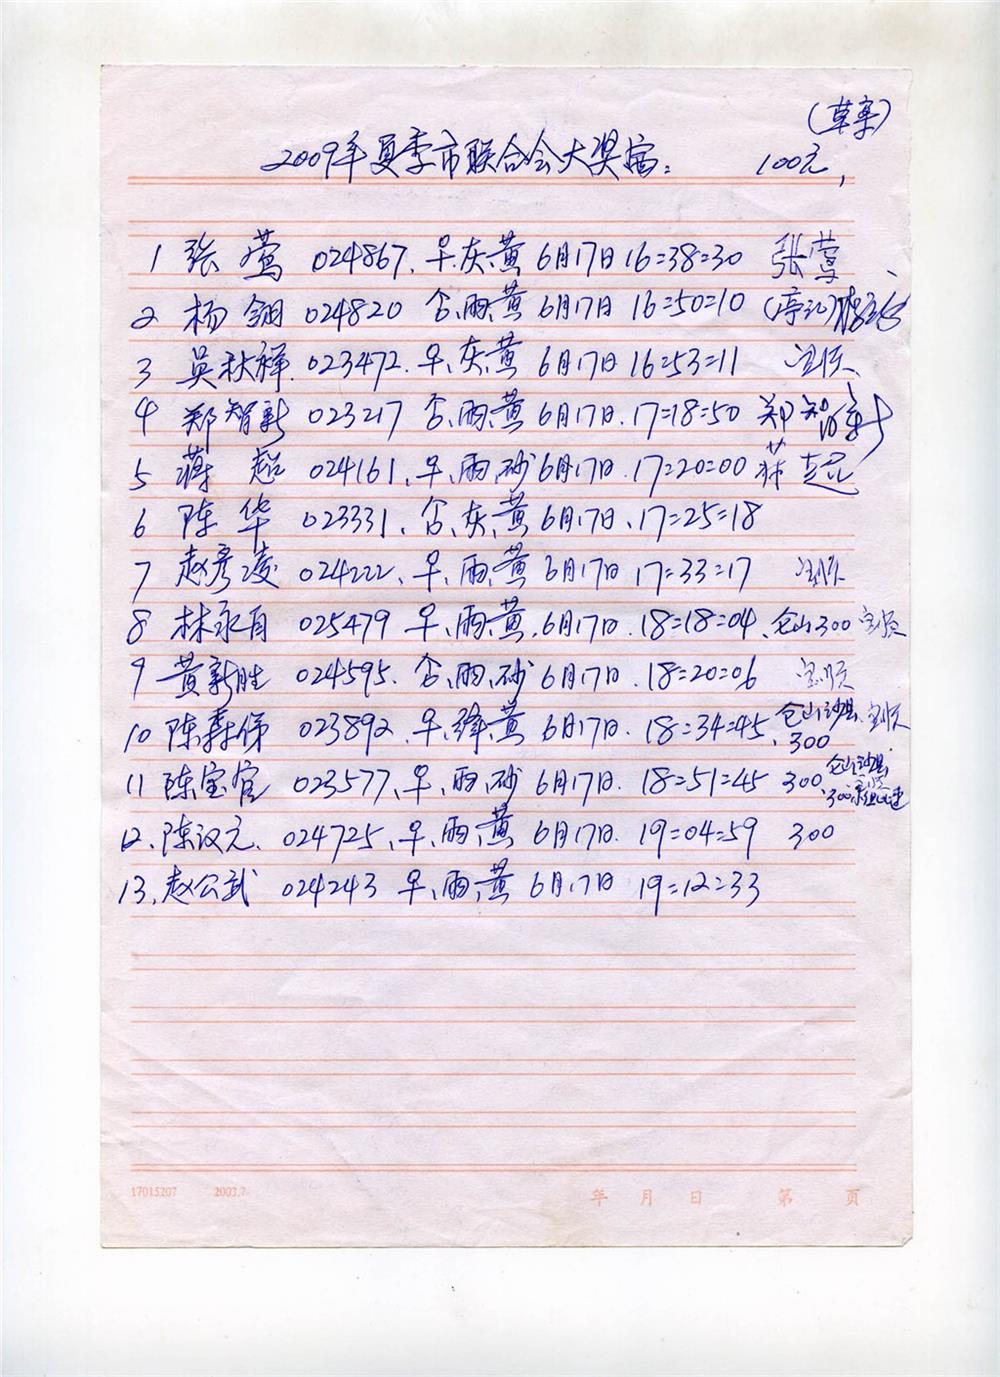 (草案)
2009年夏季市联合会大奖 : 100元,
1 张莺 024867. 早.灰.黄 6月17日 16=38=30 张莺
2 杨翎 024820 舍.雨.黄 6月17日 16=50=10
3 吴秋祥. 023472. 早.灰.黄 6月17日 16=53=11 宝顺
4 郑智新 023217 舍.雨.黄 6月17日. 17=18=50 郑智新
5 蒋超 024161. 早.雨.砂 6月17日. 17=20=00 蒋超
6 陈华 023331. 舍.灰.黄 6月17日. 17=25=18
7 赵彦凌 024222. 早.雨.黄 6月17日 17=33=17 宝顺
8 林永自 025479 早.雨.黄. 6月17日. 18=18=04. 仓山300 宝顺
9 黄新胜 024595. 舍.雨.砂 6月17日. 18=20=06 宝顺
10 陈森俤 023892. 早.绛.黄 6月17日. 18=34=45. 仓山沙县.宝顺
300
11 陈宝官 023577. 早.雨.砂 6月17日. 18=51=45 300. 仓山沙县
300
12. 陈汉元. 024725. 早.雨.黄 6月17日. 19=04=59 300
13. 赵公武 024243 早.雨.黄 6月17日 19=12=33
17015207 2003.7 年 月 日 第 页